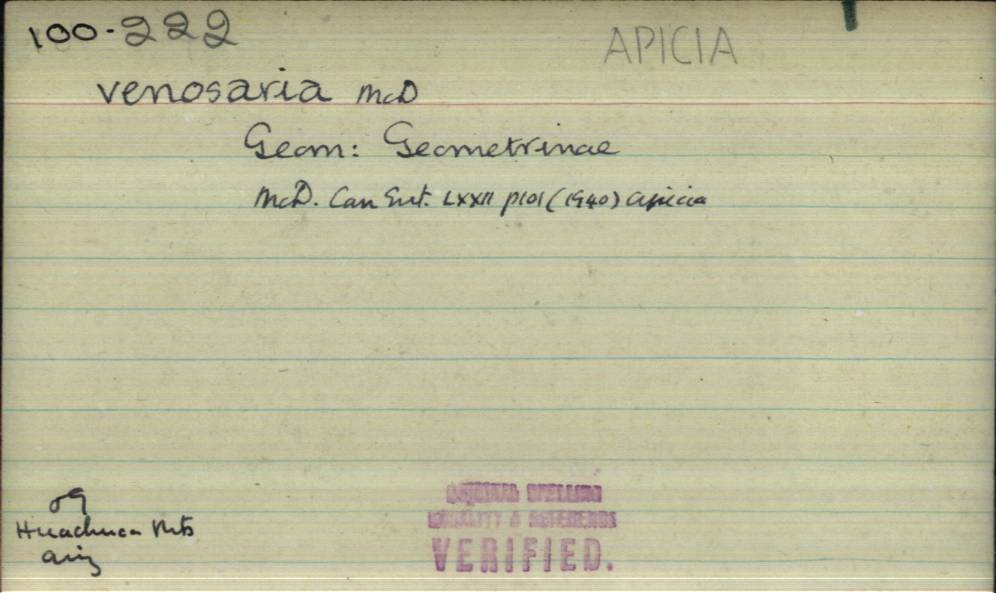 100-222
APICIA
venosaria McD
Geom: Geometrinae
McD. Can Ent. LXXII p101 (1940) Apicia
♂♀
Huachuca Mts
Ariz
ORIGINAL SPELLING
LOCALITY & REFERENCE
VERIFIED.